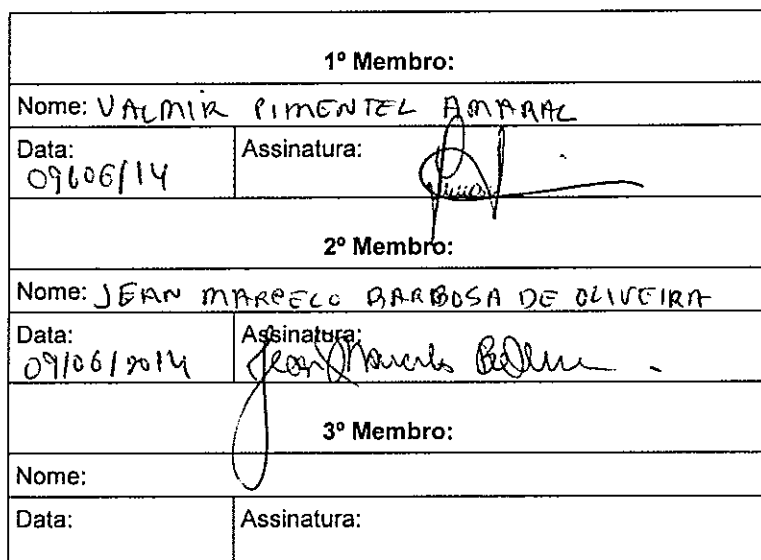 1º Membro:
Nome: VALMIR PIMENTEL AMARAL
Data: Assinatura:
09/06/14
2º Membro:
Nome: JEAN MARCELO BARBOSA DE OLIVEIRA
Data: Assinatura:
09/06/2014 Jean Marcelo
3º Membro:
Nome:
Data: Assinatura: